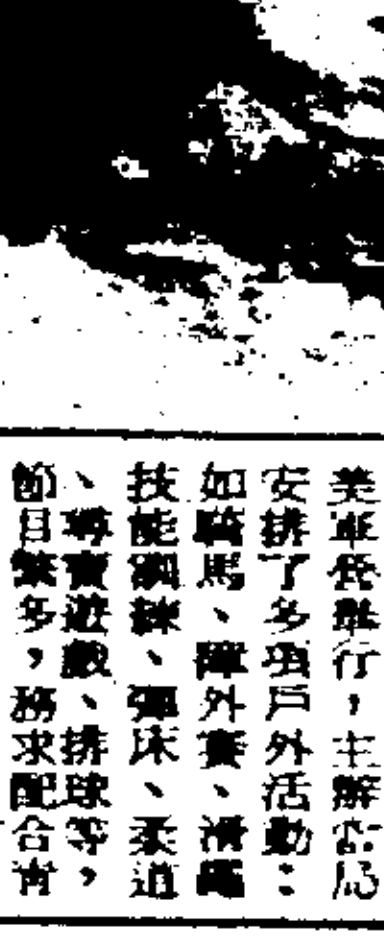 美軍營舉行，主辦當局
安排了多項戶外活動：
如騎馬、障外賽、滑繩
技能訓練、彈床、柔道
、尋寶遊戲、排球等，
節目繁多，務求配合青